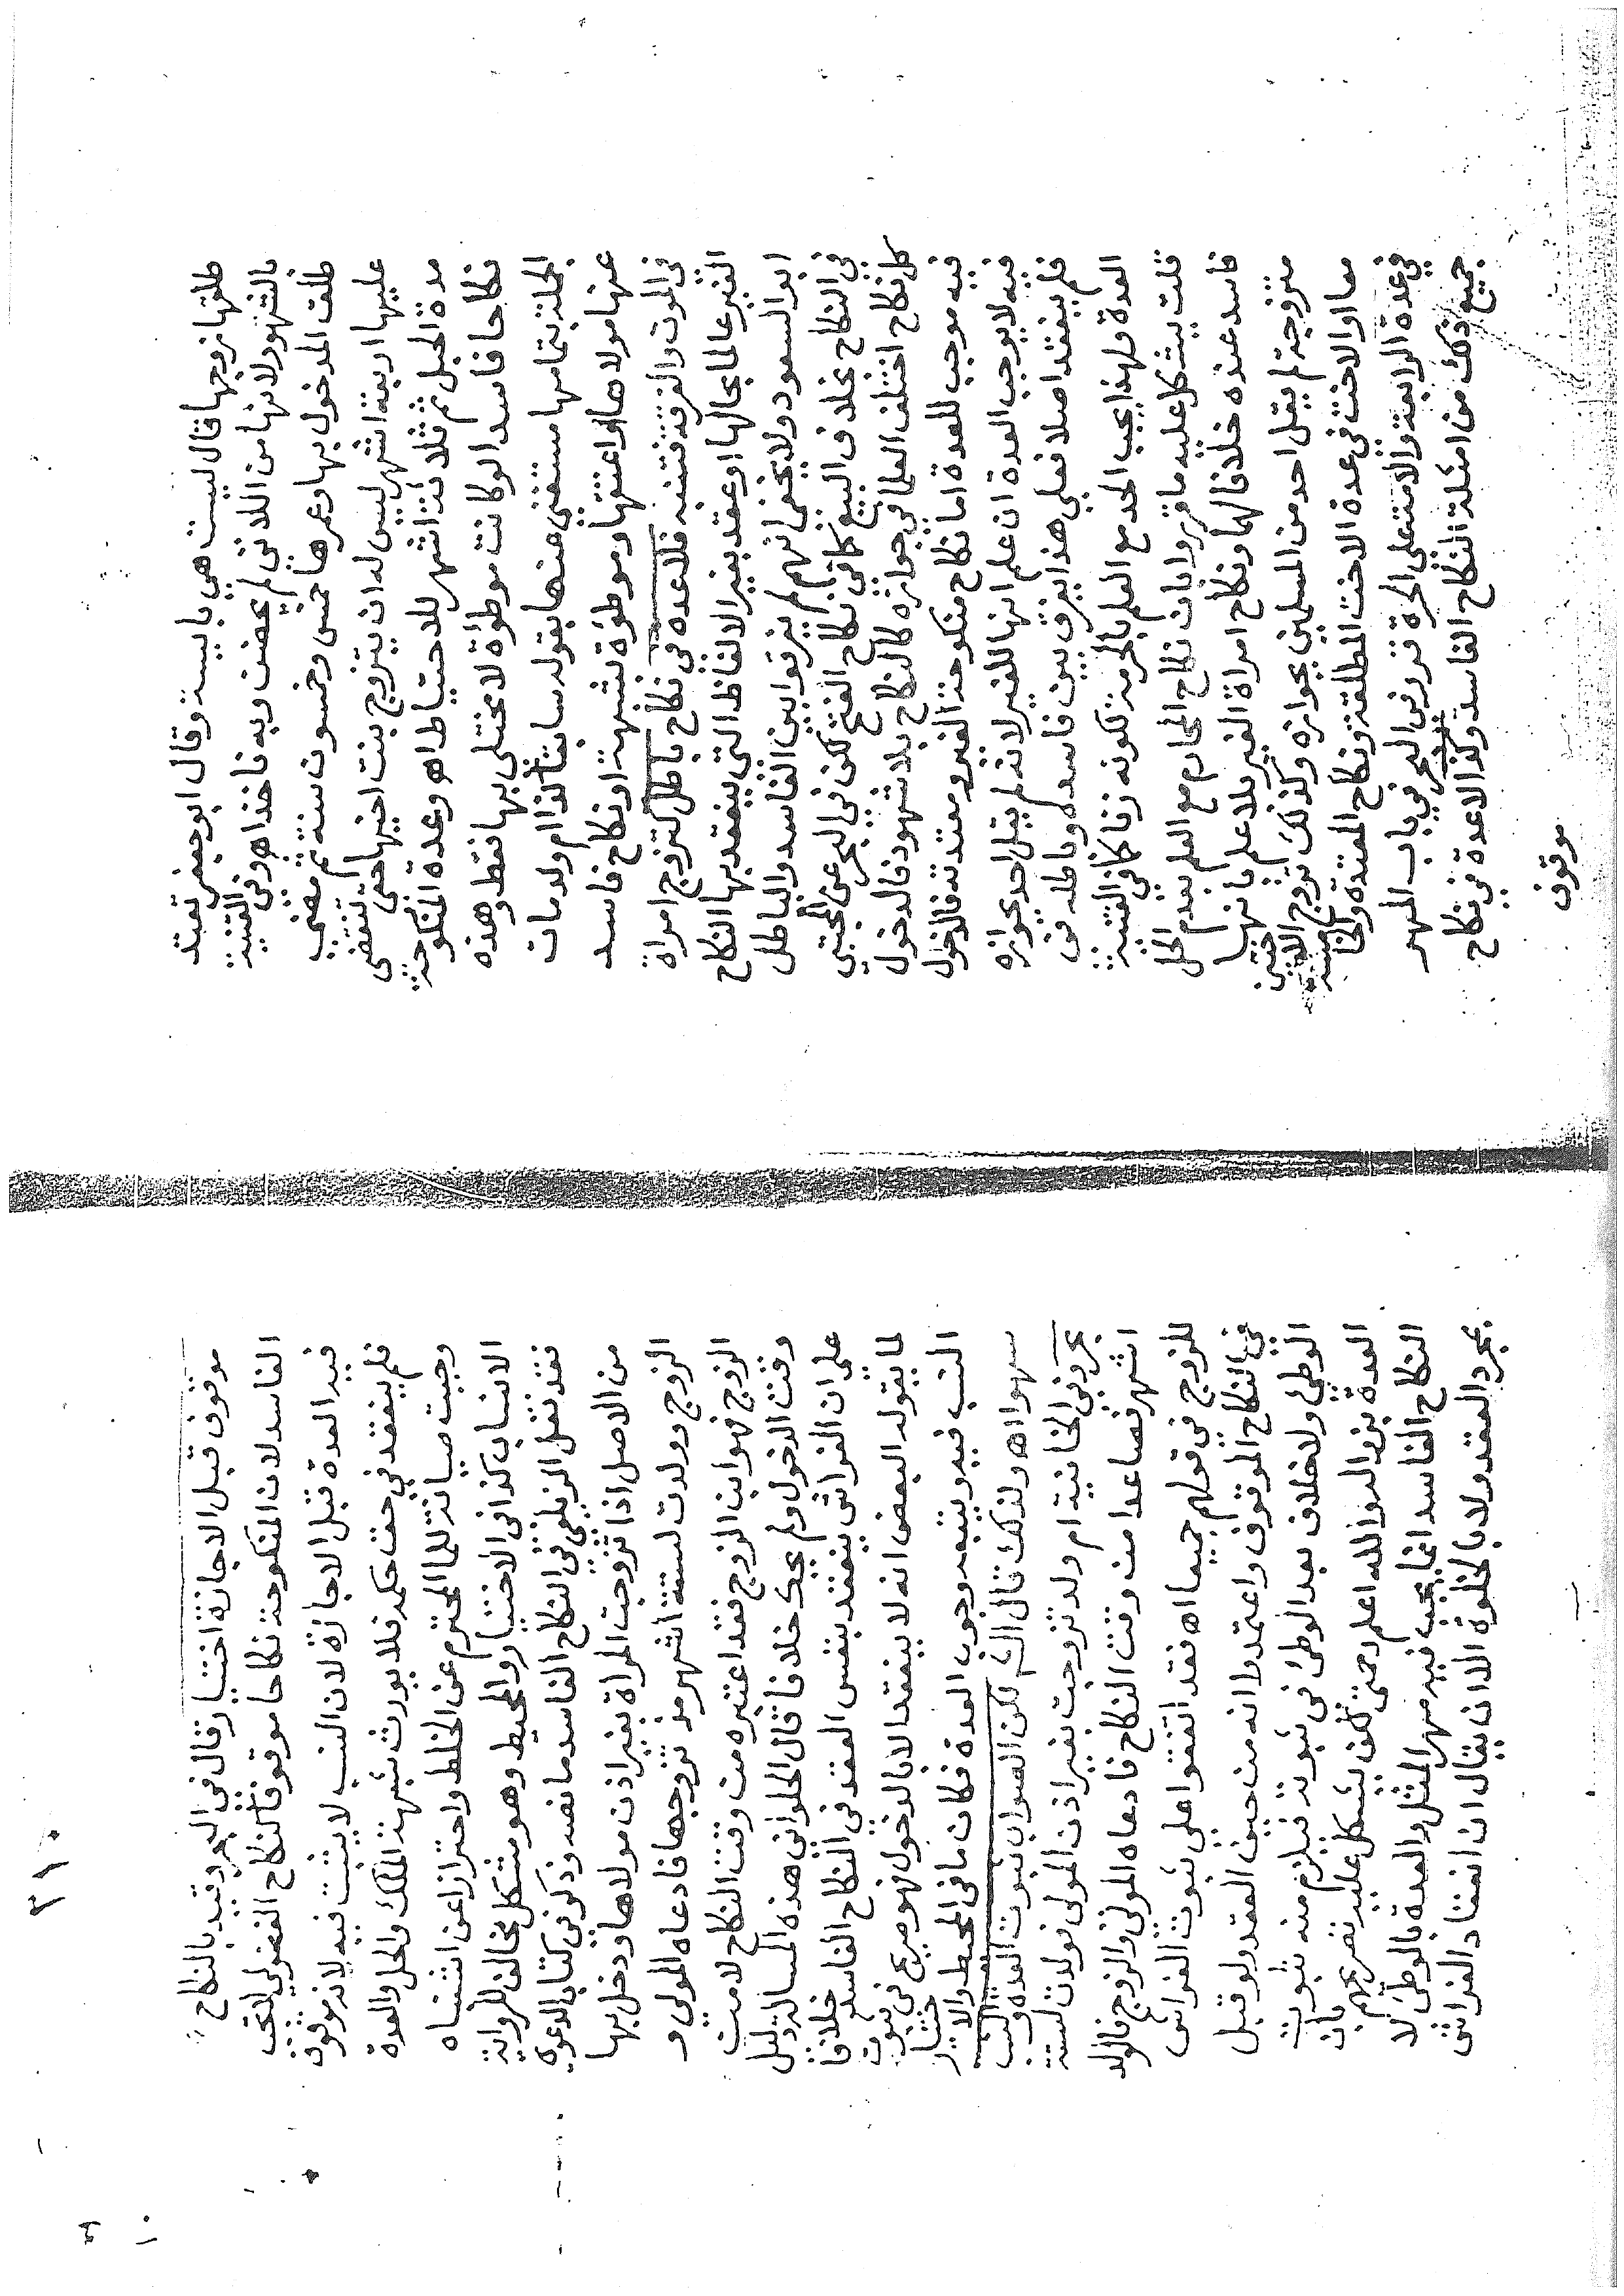 طلقها زوجها قال ليست هي بايسة وقال ابو جعفر تعتد
بالشهور لانها من اللاتي لم يحضن وبه ناخذ اه وفي القنية
طلق المدخول بها وعمرها خمس وخمسون سنة ثم مضي
عليها اربعة اشهر ليس له ان يتزوج بنت اخيها حتى تنقضى
مدة الحبل ثم ثلاثة اشهر للاحتياط اه وعدة المنكوحة
نكاحا فاسدا لو كانت موطؤة لا مختلى بها فقط وهذه
الجملة بتمامها مستغنى عنها بقوله سابقا كذا ام ولد مات
عنها مولاها او اعتقها وموطؤة بشبهة او نكاح فاسد
في الموت والفرقة تنبه فلا عدة في نكاح باطل كتزوج امراة
الغير عالما بحالها او عقد بغير الالفاظ التي ينعقد بها النكاح
ابو السعود ولا يخفى انهم لم يفرقوا بين الفاسد والباطل
في النكاح بخلاف البيع كما في نكاح الفتح لكن في البحر عن المجتبى
كل نكاح اختلف العلما في جوازه كالنكاح بلا شهود فالدخول
فيه موجب للعدة اما نكاح منكوحة الغير ومعتدته فالدخول
فيه لا يوجب العدة ان علم انها للغير لانه لم يقل احد بجوازه
فلم ينعقد اصلا فعلى هذا يفرق بين فاسده وباطله في
العدة ولهذا يجب الحد مع العلم بالحرمة لكونه زنا كما في القنية
قلت يشكل عليه ما قرروا بان نكاح المحارم مع العلم بعدم الحل
فاسد عنده خلافا لهما ونكاح امراة الغير بلا علم بانها
متزوجة لم يقل احد من المسلمين بجوازه وكذلك تزوج الاختين
معا او الاخت في عدة الاخت المطلقة ونكاح المعتدة والخامسة
في عدة الرابعة والامة على الحرة تدرر في البحر في باب المهر
جميع ذلك من امثلة النكاح الفاسد وكذا لا عدة في نكاح
موقوف
٣١٠
موقوف قبل الاجازة اختيار قال في البحر وقيد بالنكاح
الفاسد لان المنكوحة نكاحا موقوفا كنكاح الفضولي لا تجب
فيه العدة قبل الاجازة لان النسب لا يثبت فيه لانه موقوف
فلم ينعقد في حق حكمه فلا يورث شبهة الملك والحل والعدة
وجبت صيانة للما المحترم عن الخلط واحترازا عن اشتباه
الانساب كذا في الاختيار والمحيط وهو مشكل مخالف للرواية
فقد نقل الزيلعي في النكاح الفاسد ما نصه وذكر في كتاب الدعوى
من الاصل اذا تزوجت المراة بغير اذن مولاها ودخل بها
الزوج وولدت لستة اشهر مذ تزوجها فادعاه المولى و
الزوج فهو ابن الزوج فقد اعتبره من وقت النكاح لا من
وقت الدخول ولم يحك خلافا قال الحلواني هذه المسالة دليل
على ان الفراش ينعقد بنفس العقد في النكاح الفاسد خلافا
لما يقوله البعض انه لا ينعقد الا بالدخول فهو صريح في ثبوت
النسب فيه ويتبعه وجوب العدة فكان ما في المحيط والاختيار
سهوا اه ولذلك قال الشم لكن الصواب ثبوت العدة والنسب
بحر وفي الخانية ام ولد تزوجت بغير اذن المولى فولدت لستة
اشهر فصاعدا من وقت النكاح فادعاه المولى والزوج فالولد
للزوج في قولهم جميعا اه فقد اتفقوا على ثبوت الفراش
في النكاح الموقوف واعتمدوا انه من حين العقد ولو قبل
الوطئ ولا خلاف بعد الوطئ في ثبوته فيلزم منه ثبوت
العدة بزواله والله اعلم رحمتي لكن يشكل عليه تصريحهم بان
النكاح الفاسد انما يجب فيه مهر المثل والعدة بالوطئ لا
بمجرد العقد ولا بالخلوة الا ان يقال ان انعقاد الفراش